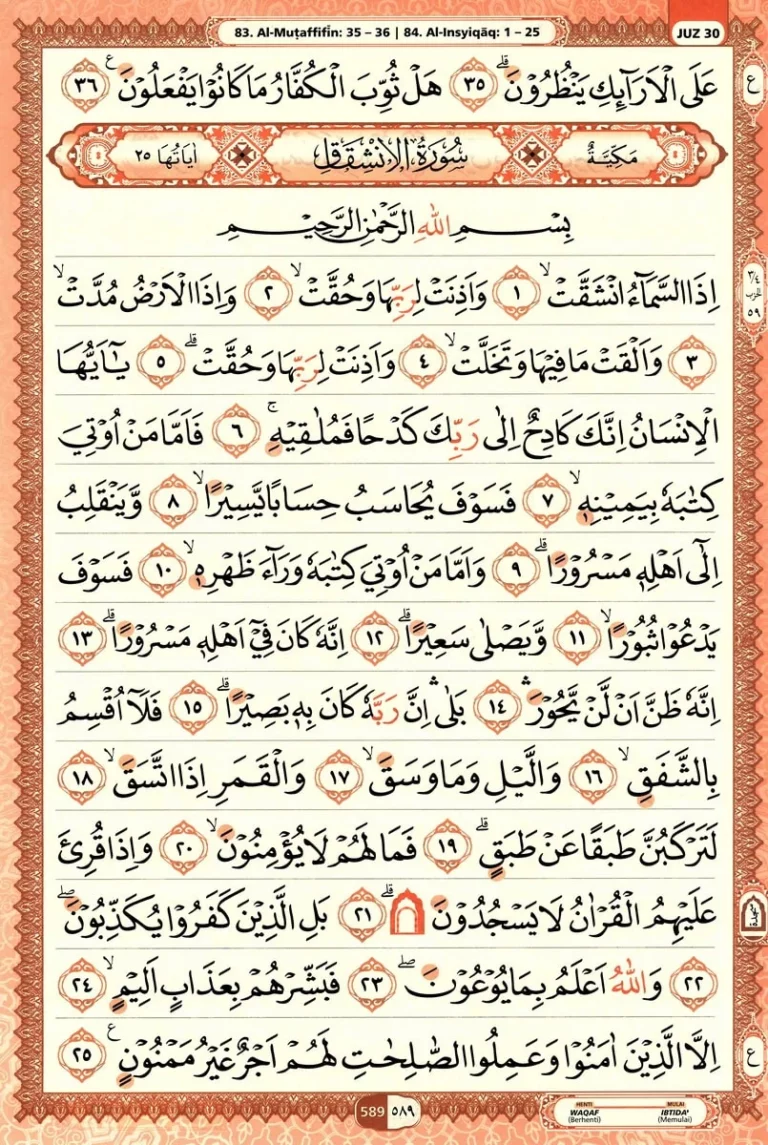 83. Al-Muṭaffifīn: 35 – 36 | 84. Al-Insyiqāq: 1 – 25
JUZ 30
عَلَى الْاَرَاۤىِٕكِ يَنْظُرُوْنَۗ ٣٥ هَلْ ثُوِّبَ الْكُفَّارُ مَا كَانُوْا يَفْعَلُوْنَ ࣖ ٣٦
ع
مَكِّيَّةٌ سُوْرَةُ الْاِنْشِقَاقِ اٰيَاتُهَا ٢٥
بِسْمِ اللّٰهِ الرَّحْمٰنِ الرَّحِيْمِ
اِذَا السَّمَاۤءُ انْشَقَّتْۙ ١ وَاَذِنَتْ لِرَبِّهَا وَحُقَّتْۙ ٢ وَاِذَا الْاَرْضُ مُدَّتْۙ
٣/٤ الحزب ٥٩
٣ وَاَلْقَتْ مَا فِيْهَا وَتَخَلَّتْۙ ٤ وَاَذِنَتْ لِرَبِّهَا وَحُقَّتْۗ ٥ يٰٓاَيُّهَا
الْاِنْسَانُ اِنَّكَ كَادِحٌ اِلٰى رَبِّكَ كَدْحًا فَمُلٰقِيْهِۚ ٦ فَاَمَّا مَنْ اُوْتِيَ
كِتٰبَهٗ بِيَمِيْنِهٖۙ ٧ فَسَوْفَ يُحَاسَبُ حِسَابًا يَّسِيْرًاۙ ٨ وَّيَنْقَلِبُ
اِلٰٓى اَهْلِهٖ مَسْرُوْرًاۗ ٩ وَاَمَّا مَنْ اُوْتِيَ كِتٰبَهٗ وَرَاۤءَ ظَهْرِهٖۙ ١٠ فَسَوْفَ
يَدْعُوْا ثُبُوْرًاۙ ١١ وَّيَصْلٰى سَعِيْرًاۗ ١٢ اِنَّهٗ كَانَ فِيْٓ اَهْلِهٖ مَسْرُوْرًاۗ ١٣
اِنَّهٗ ظَنَّ اَنْ لَّنْ يَّحُوْرَۛ ١٤ بَلٰىۛ اِنَّ رَبَّهٗ كَانَ بِهٖ بَصِيْرًاۗ ١٥ فَلَآ اُقْسِمُ
بِالشَّفَقِۙ ١٦ وَالَّيْلِ وَمَا وَسَقَۙ ١٧ وَالْقَمَرِ اِذَا اتَّسَقَۙ ١٨
لَتَرْكَبُنَّ طَبَقًا عَنْ طَبَقٍۗ ١٩ فَمَا لَهُمْ لَا يُؤْمِنُوْنَۙ ٢٠ وَاِذَا قُرِئَ
عَلَيْهِمُ الْقُرْاٰنُ لَا يَسْجُدُوْنَۗ ۩ ٢١ بَلِ الَّذِيْنَ كَفَرُوْا يُكَذِّبُوْنَۖ
سجدة
٢٢ وَاللّٰهُ اَعْلَمُ بِمَا يُوْعُوْنَۖ ٢٣ فَبَشِّرْهُمْ بِعَذَابٍ اَلِيْمٍۙ ٢٤
اِلَّا الَّذِيْنَ اٰمَنُوْا وَعَمِلُوا الصّٰلِحٰتِ لَهُمْ اَجْرٌ غَيْرُ مَمْنُوْنٍ ࣖ ٢٥
ع
589 ٥٨٩
HENTI MULAI
WAQAF IBTIDA'
(Berhenti) (Memulai)